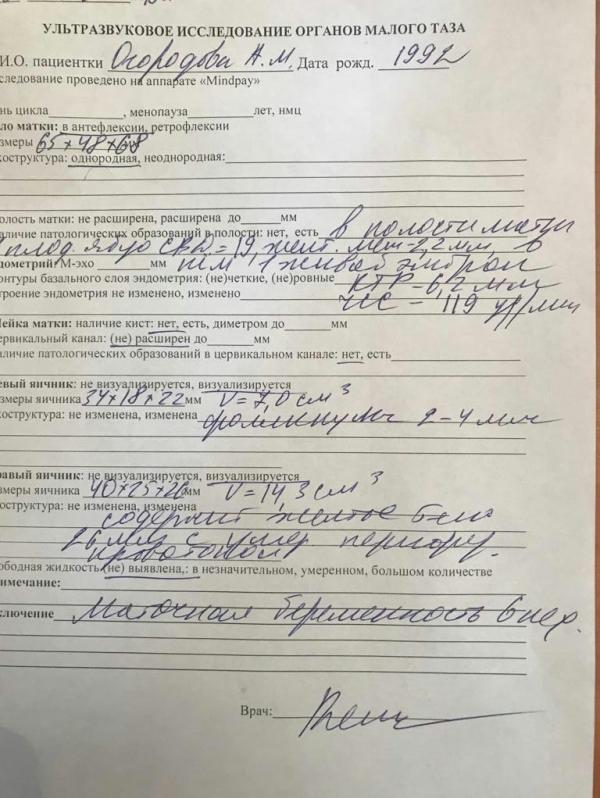 УЛЬТРАЗВУКОВОЕ ИССЛЕДОВАНИЕ ОРГАНОВ МАЛОГО ТАЗА
И.О. пациентки Огородова А.М. Дата рожд. 1992
следование проведено на аппарате «Mindpay»
нь цикла, менопауза лет, нмц
ло матки: в антефлексии, ретрофлексии
змеры 65×48×68
хоструктура: однородная, неоднородная:
олость матки: не расширена, расширена до мм
аличие патологических образований в полости: нет, есть в полости матки
1 плод. яйцо СВД=19, желт. меш-2,2мм, в
ндометрий: М-эхо мм нём 1 живой эмбрион
онтуры базального слоя эндометрия: (не)четкие, (не)ровные КТР-6,2 мм
троение эндометрия не изменено, изменено ЧСС - 119 уд/мин
Шейка матки: наличие кист: нет, есть, диметром до мм
ервикальный канал: (не) расширен до мм
аличие патологических образований в цервикальном канале: нет, есть
евый яичник: не визуализируется, визуализируется
змеры яичника 34×18×22 мм V=7,0 см³
хоструктура: не изменена, изменена фолликулы 2-4 мм
равый яичник: не визуализируется, визуализируется
змеры яичника 40×25×26 мм V=14,3 см³
хоструктура: не изменена, изменена
содержит желтое тело
26 мм с умер перифер.
кровотоком
ободная жидкость (не) выявлена,: в незначительном, умеренном, большом количестве
имечание:
ключение Маточная беременность 6 нед.
Врач: